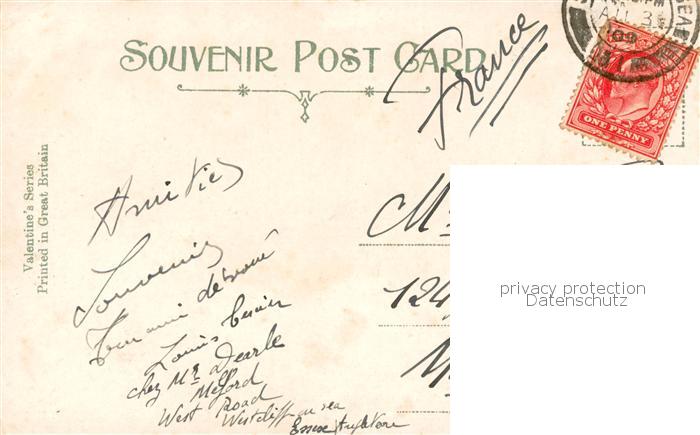 SOUVENIR POST CARD
France
ONE PENNY
09
Valentine's Series
Printed in Great Britain
Amitiés
Souvenir
Ton ami dévoué
Louis
chez Mr Dearle
Road
West Westcliff on sea
Essex Angleterre
M
124
M
privacy protection
Datenschutz